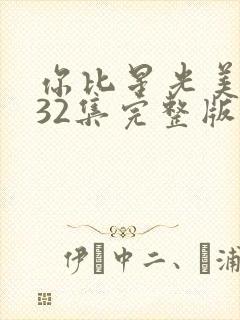 你比星光美
32集完整版
伊 中二、 浦